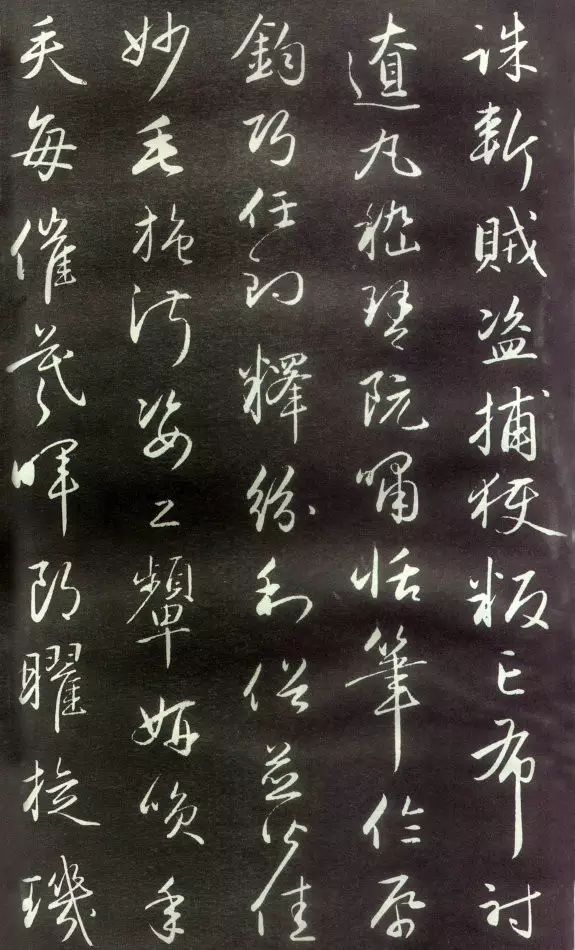 誅斬賊盗捕獲叛亡布射
遼丸嵇琴阮嘯恬筆倫帋
鈞巧任釣釋紛利俗並皆佳
妙毛施淑姿工顰妍咲年
矢每催羲暉朗曜旋璣